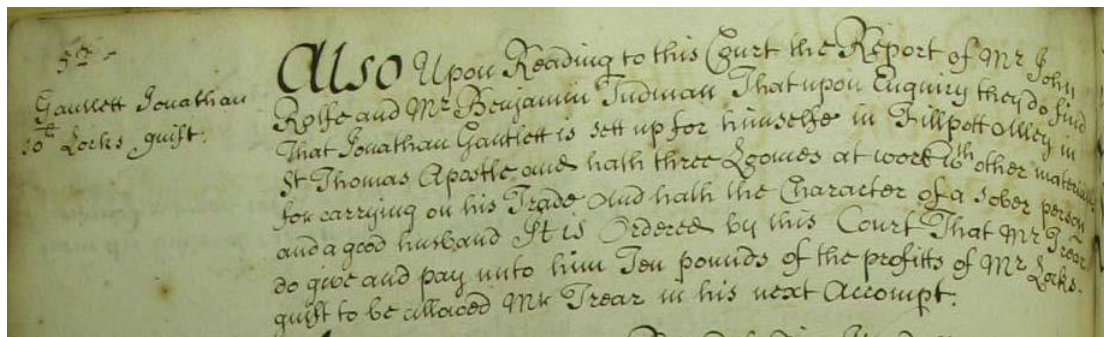 5th
Gautlett Jonathan
10li Locks guift.
Also Upon Reading to this Court the Report of Mr John
Rolfe and Mr Benjamin Tudman That upon Enquiry they do find
That Jonathan Gautlett is sett up for himselfe in Fillpott Alley in
St Thomas Apostle and hath three Loomes at work wth other materialls
for carrying on his Trade And hath the Character of a sober person
and a good husband It is Ordered by this Court That Mr Trear
do give and pay unto him Ten pounds of the profitts of Mr Locks
guift to be allowed Mr Trear in his next Accompt.